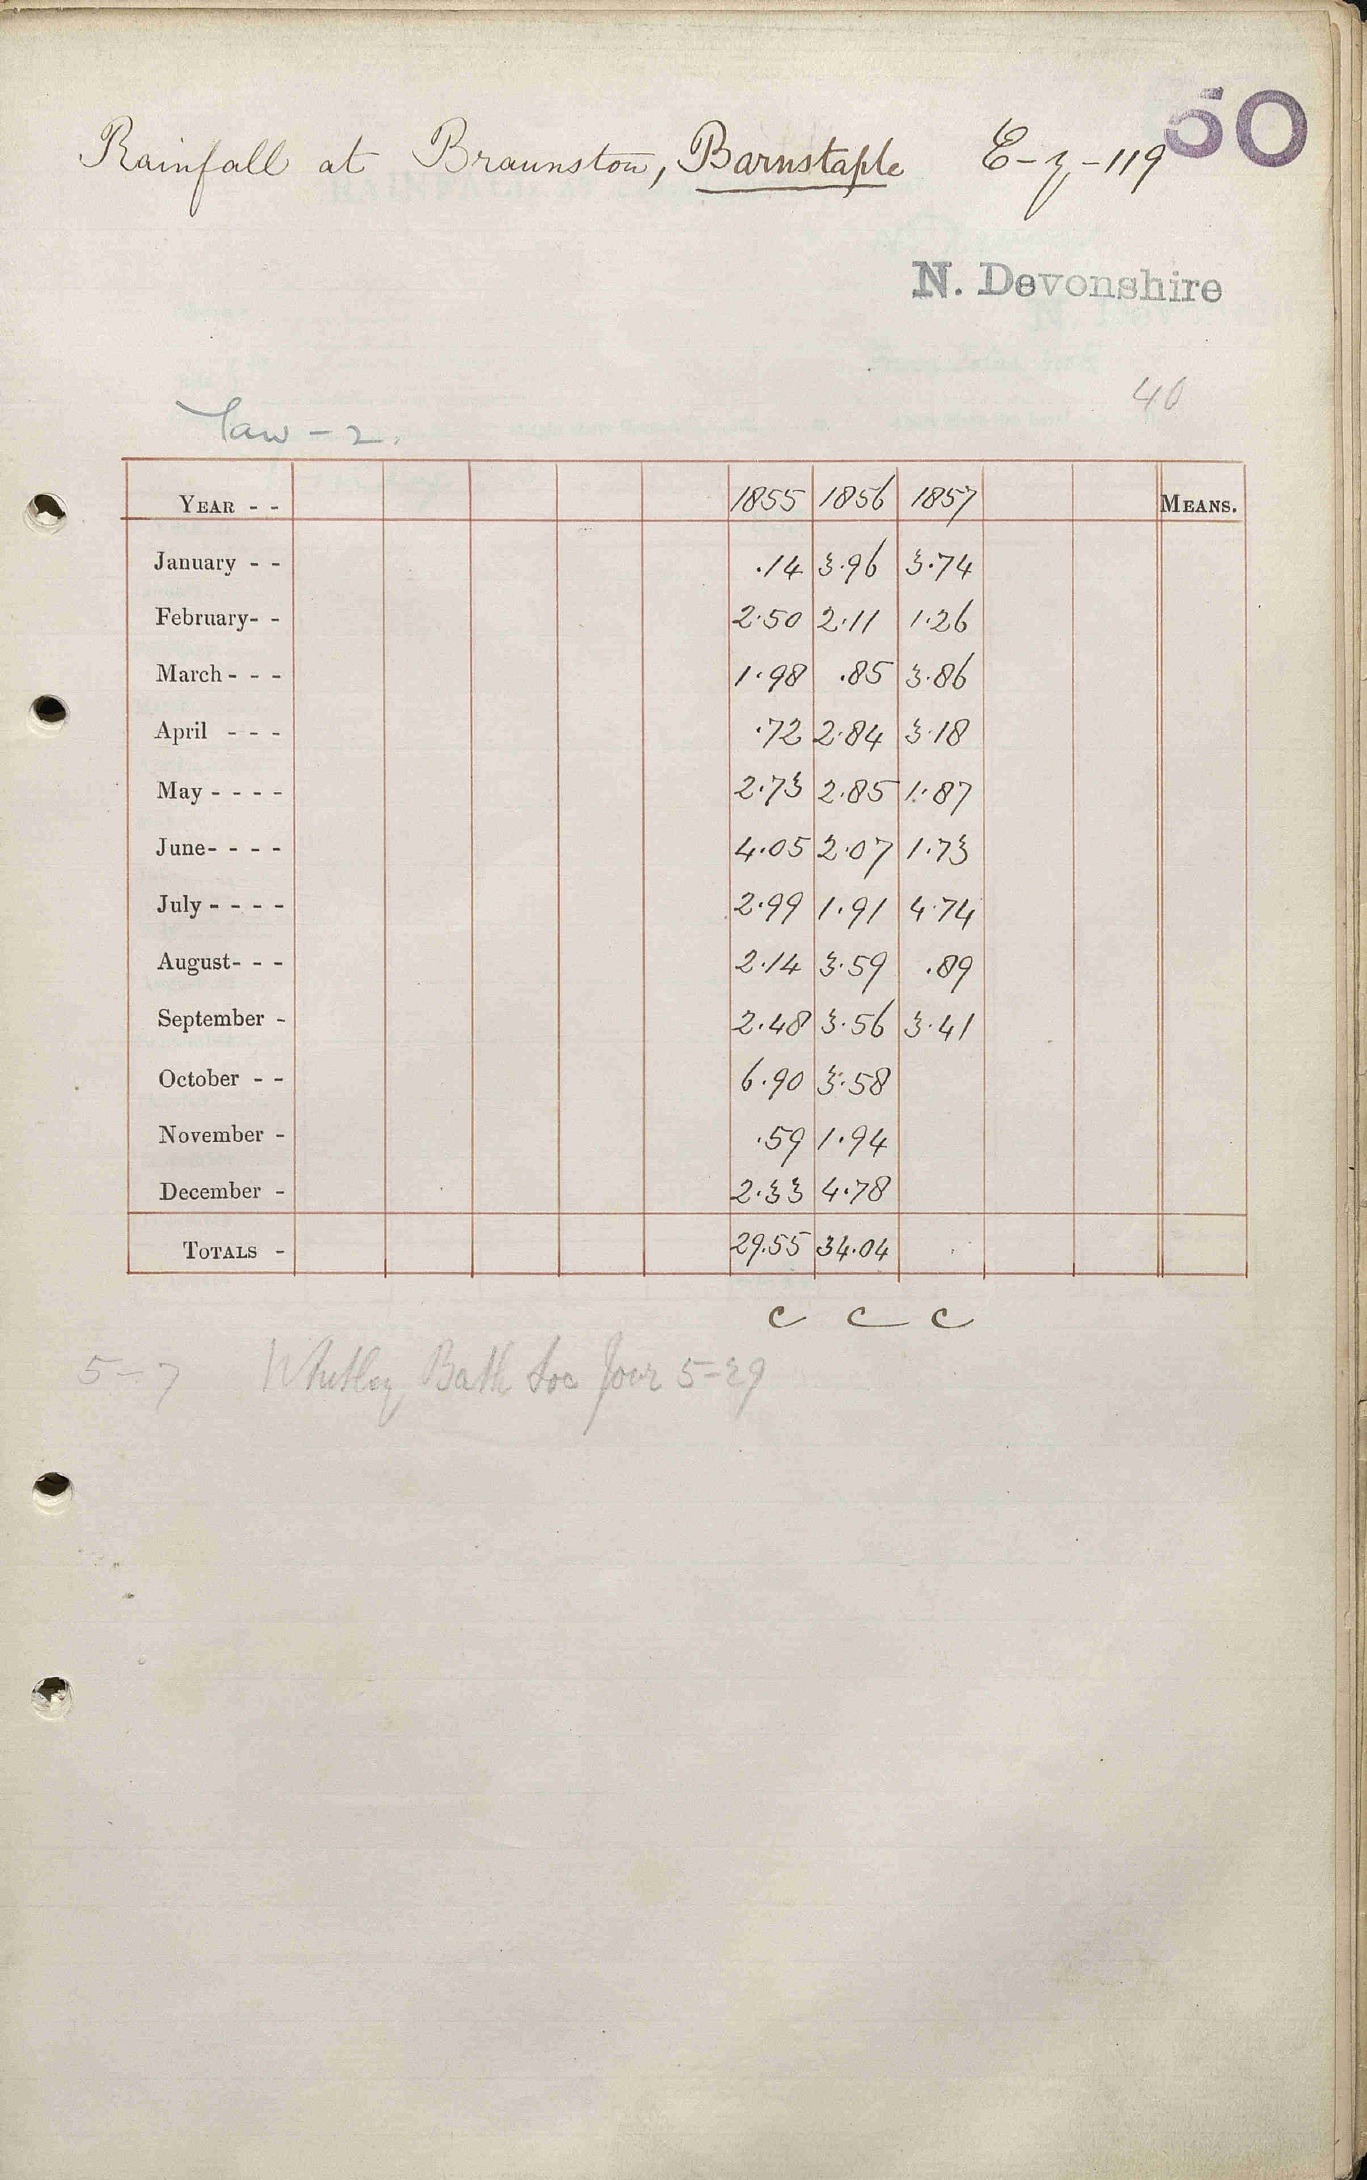 50
Rainfall at Braunston, Barnstaple E-z-119
N. Devonshire
40
Taw - 2.
YEAR - - 1855 1856 1857 MEANS.
January - - .14 3.96 3.74
February- - 2.50 2.11 1.26
March - - - 1.98 .85 3.86
April - - - .72 2.84 3.18
May - - - - 2.73 2.85 1.87
June- - - - 4.05 2.07 1.73
July - - - - 2.99 1.91 4.74
August- - - 2.14 3.59 .89
September - 2.48 3.56 3.41
October - - 6.90 3.58
November - .59 1.94
December - 2.33 4.78
TOTALS - 29.55 34.04
c c c
5-7 Whitley Bath Soc Jour 5-29